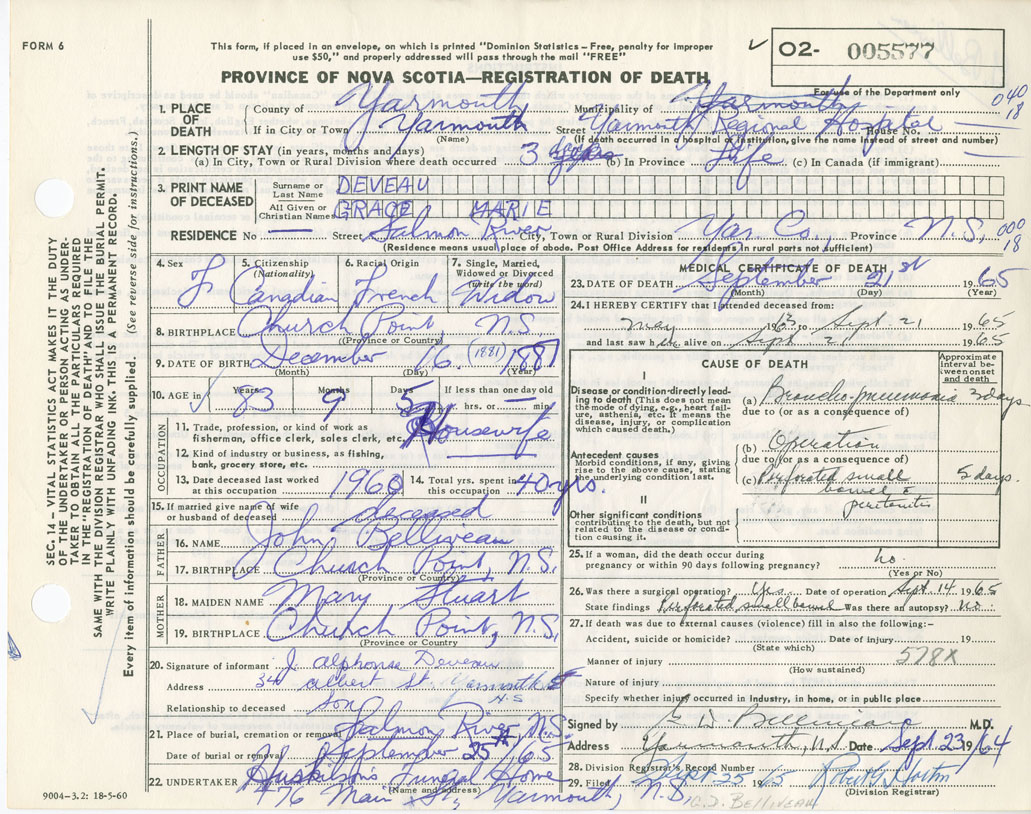 FORM 6
This form, if placed in an envelope, on which is printed "Dominion Statistics—Free, penalty for improper
use $50," and properly addressed will pass through the mail "FREE"
O2- 005577
For use of the Department only
PROVINCE OF NOVA SCOTIA—REGISTRATION OF DEATH
040
18
1. PLACE OF DEATH
County of Yarmouth Municipality of Yarmouth
If in City or Town Yarmouth Street Yarmouth Regional Hospital House No.
(Name) (If death occurred in a hospital or institution, give the name instead of street and number)
2. LENGTH OF STAY (in years, months and days)
(a) In City, Town or Rural Division where death occurred 3 (b) In Province Life (c) In Canada (if immigrant)
3. PRINT NAME OF DECEASED
Surname or Last Name DEVEAU
All Given or Christian Names GRACE MARIE
RESIDENCE No — Street Salmon River City, Town or Rural Division Yar. Co., Province N.S.
000
18
(Residence means usual place of abode. Post Office Address for residents in rural parts not sufficient)
4. Sex F
5. Citizenship (Nationality) Canadian
6. Racial Origin French
7. Single, Married, Widowed or Divorced (write the word) Widow
8. BIRTHPLACE Church Point, N.S.
(Province or Country)
9. DATE OF BIRTH December 16 (1881) 1881
(Month) (Day) (Year)
10. AGE in Years 83 Months 9 Days 5 If less than one day old — hrs. or min.
OCCUPATION
11. Trade, profession, or kind of work as fisherman, office clerk, sales clerk, etc. Housewife
12. Kind of industry or business, as fishing, bank, grocery store, etc.
13. Date deceased last worked at this occupation 1960
14. Total yrs. spent in this occupation 40 yrs.
15. If married give name of wife or husband of deceased deceased
FATHER
16. NAME John Belliveau
17. BIRTHPLACE Church Point, N.S.
(Province or Country)
MOTHER
18. MAIDEN NAME Mary Stuart
19. BIRTHPLACE Church Point, N.S.
(Province or Country)
20. Signature of informant J. Alphonse Deveau
Address 34 Albert St. Yarmouth N.S
Relationship to deceased son
21. Place of burial, cremation or removal Salmon River, N.S.
Date of burial or removal September 25, /65
22. UNDERTAKER Huskilson's Funeral Home
(Name and address)
476 Main St., Yarmouth, N.S.
MEDICAL CERTIFICATE OF DEATH
23. DATE OF DEATH September 21st 1965
(Month) (Day) (Year)
24. I HEREBY CERTIFY that I attended deceased from:
May 1963 to Sept. 21 1965
and last saw her alive on Sept. 21 1965
CAUSE OF DEATH
Approximate interval between onset and death
I
Disease or condition directly leading to death (This does not mean the mode of dying, e.g., heart failure, asthenia, etc. It means the disease, injury, or complication which caused death.)
(a) Broncho-pneumonia 3 days
due to (or as a consequence of)
Antecedent causes
Morbid conditions, if any, giving rise to the above cause, stating the underlying condition last.
(b) Operation
due to (or as a consequence of)
(c) Perforated small bowel & peritonitis 5 days.
II
Other significant conditions
contributing to the death, but not related to the disease or condition causing it.
25. If a woman, did the death occur during pregnancy or within 90 days following pregnancy? no
(Yes or No)
26. Was there a surgical operation? Yes. Date of operation Sept. 14. 1965
State findings Perforated small bowel Was there an autopsy? No.
27. If death was due to external causes (violence) fill in also the following:—
Accident, suicide or homicide? Date of injury 19
(State which)
578X
Manner of injury
(How sustained)
Nature of injury
Specify whether injury occurred in industry, in home, or in public place
Signed by G D Belliveau M.D.
Address Yarmouth, N.S. Date Sept. 23 19/64
28. Division Registrar's Record Number
29. Filed Sept 25 1965 Robert G Horton
(Division Registrar)
G.D. BELLIVEAU
SEC. 14 — VITAL STATISTICS ACT MAKES IT THE DUTY
OF THE UNDERTAKER OR PERSON ACTING AS UNDER-
TAKER TO OBTAIN ALL THE PARTICULARS REQUIRED
IN THE "REGISTRATION OF DEATH" AND TO FILE THE
SAME WITH THE DIVISION REGISTRAR WHO SHALL ISSUE THE BURIAL PERMIT.
WRITE PLAINLY WITH UNFADING INK. THIS IS A PERMANENT RECORD.
Every item of information should be carefully supplied. (See reverse side for instructions.)
9004-3.2: 18-5-60